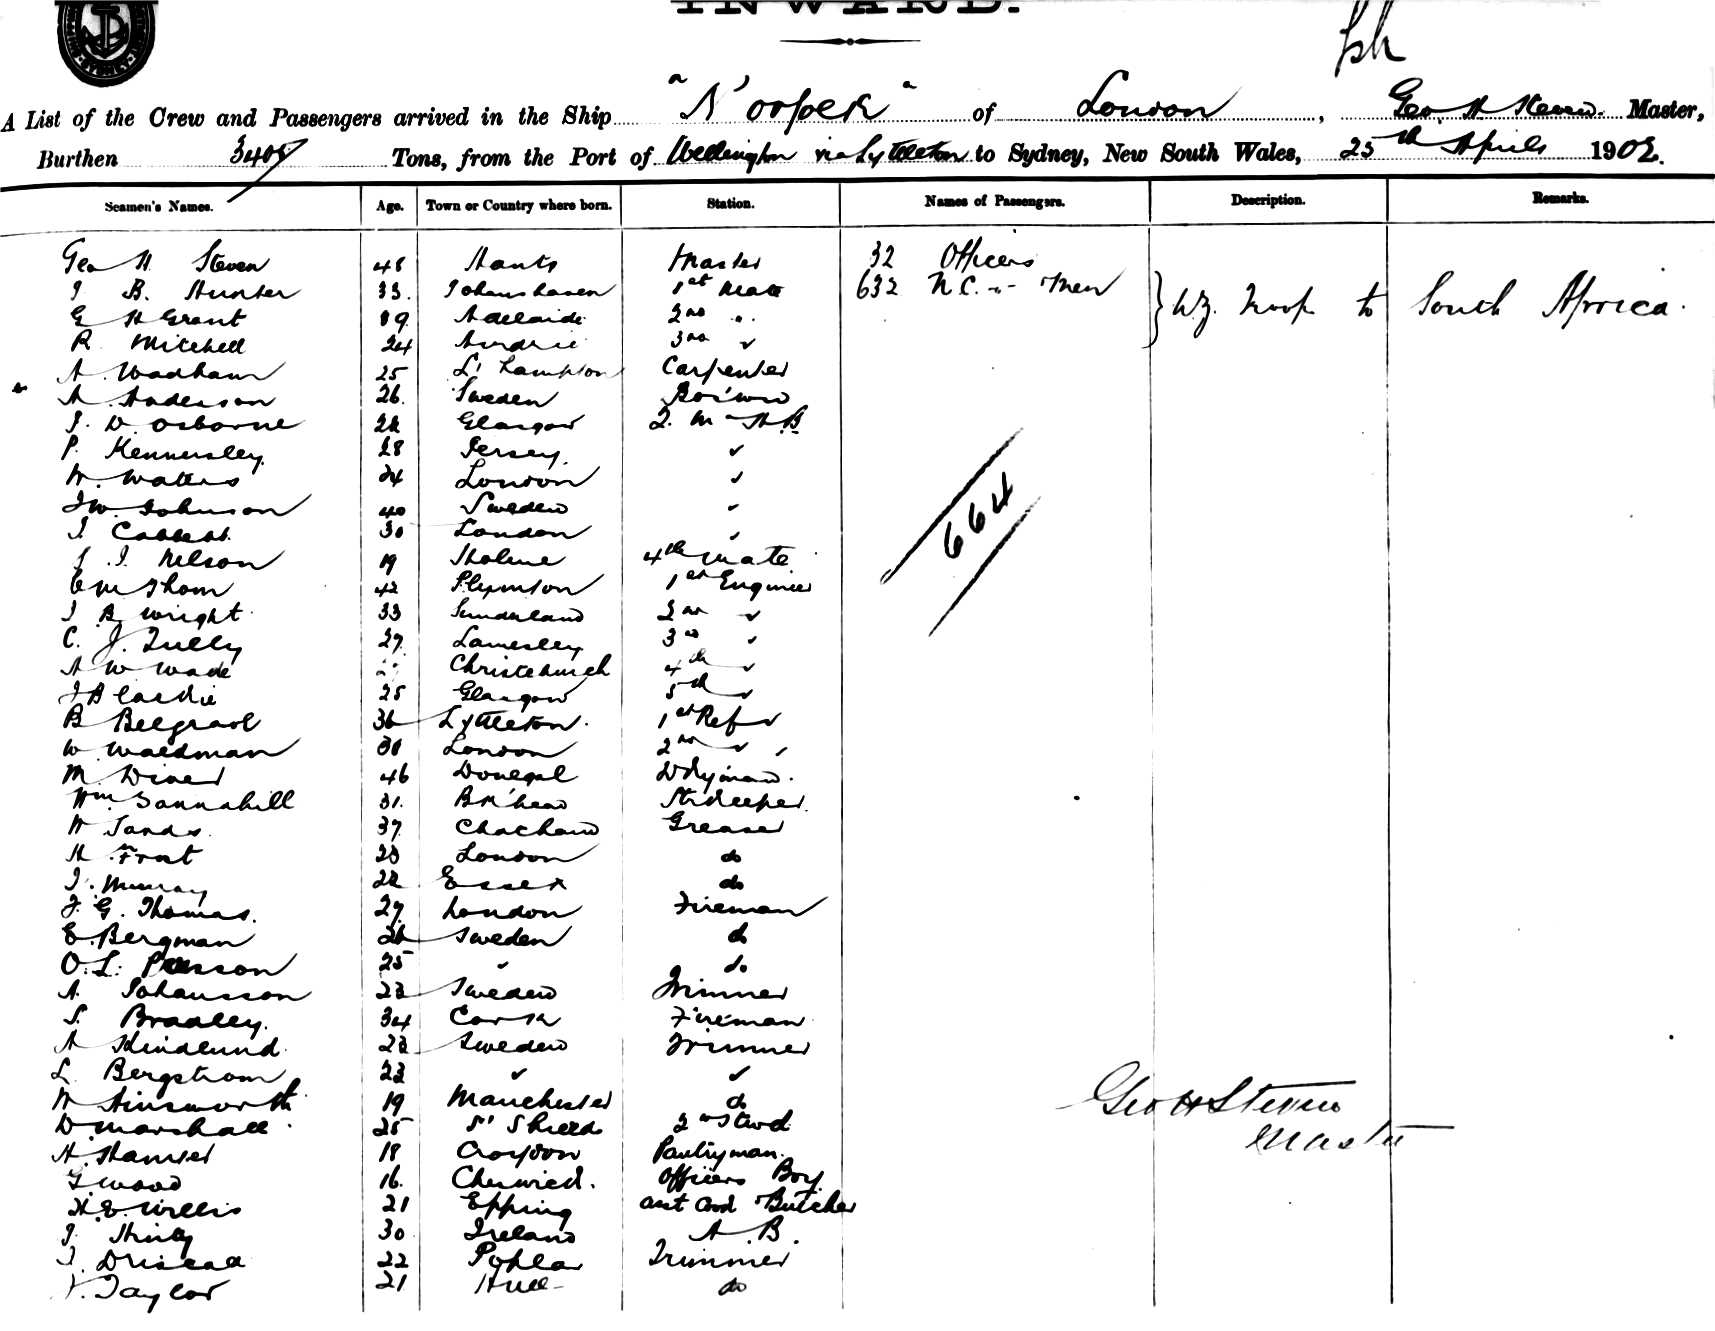 INWARD.
A List of the Crew and Passengers arrived in the Ship "Norfolk" of London, Geo. H Steven. Master,
Burthen 3405 Tons, from the Port of Wellington via Lyttleton to Sydney, New South Wales, 25th April 1902.
Seamen's Names. Age. Town or Country where born. Station. Names of Passengers. Description. Remarks.
Geo H Steven 48 Hants Master 32 Officers
J B. Hunter 33. Johnshaven 1st Mate 632 N.C. " Men
N.Z. Troops to South Africa.
G H Grant 29 Adelaide 2nd "
R Mitchell 24 Airdrie 3rd "
A. Wadham 25 Carpenter
A Anderson 26. Sweden Bos'wn
J. D. Osborne 22 Glasgow Q. M & A.B
P. Kennersley. 28 Jersey. "
W. Watters 24 London "
J W Johnson 40 Sweden "
J. 30 London "
664
J. J. Nelson 19 4th Mate
Thom 42 Plymton 1st Engineer
J B Wright 33 Sunderland 2nd "
C. J. Tully 27. Lamesley 3rd "
A W Wade Christchurch 4th "
25 Glasgow 5th "
B Belgrave 36 Lyttleton. 1st Ref "
W Waldman London 2nd " "
M Diver 46 Donegal D'kyman.
Wm Tannahill 31. B'k'head St'Keeper.
W Sands. 37. Chatham Greaser
H Frost 23 London do
J. Murray 22 Essex do
J. G. Thomas. 27. London Fireman
E. Bergman 26 Sweden do
O. L. Persson 25 " do
A. Johansson 22 Sweden Trimmer
S. Bradley. 34 Cork Fireman
A Skindlund. 22 Sweden Trimmer
L. Bergstrom 22 " "
W Ainsworth 19 Manchester do
D. Marshall 25 Sth Shields 2nd Stwd
H. 18 Croydon Pantryman.
G Wood 16. Officers Boy
H. E. Willis 21 Epping asst Cook & Butcher
J. 30 Ireland A. B.
J. Driscoll 22 Poplar Trimmer
Taylor 21 Hull do
Geo H Steven
Master